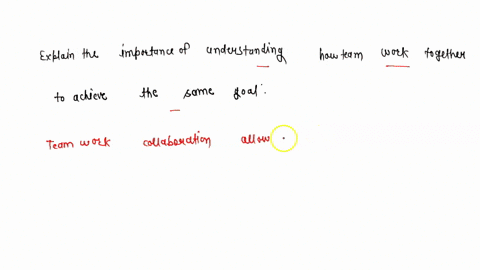 Explain the importance of understanding how team work together
to achieve the same goal.
Team work collaboration allow